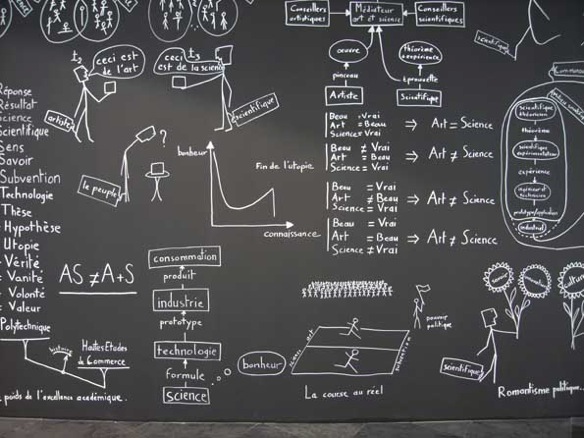 Conseillers
artistiques
Médiateur
art et science
Conseillers
scientifiques
t2
ceci est
de l'art
t3
ceci
est de la science
artiste
scientifique
oeuvre
théorème
expérience
pinceau
éprouvette
Artiste
Scientifique
scientifique
Réponse
Résultat
Science
Scientifique
Sens
Savoir
Subvention
Technologie
Thèse
Hypothèse
Utopie
= Vérité
= Vanité
= Volonté
= Valeur
?
le peuple
bonheur
Fin de l'utopie
connaissance
Beau = Vrai
Art = Beau
Science = Vrai
⇒ Art = Science
Beau ≠ Vrai
Art = Beau
Science = Vrai
⇒ Art ≠ Science
Beau = Vrai
Art ≠ Beau
Science = Vrai
⇒ Art ≠ Science
Beau = Vrai
Art = Beau
Science ≠ Vrai
⇒ Art ≠ Science
scientifique
théoricien
théorème
scientifique
expérimentateur
expérience
ingénieur
technicien
industriel
AS ≠ A+S
Polytechnique
histoire
Hautes Etudes
de Commerce
poids de l'excellence académique.
consommation
produit
industrie
prototype
technologie
formule
science
bonheur
art
pouvoir
politique
La course au réel
savoir
culture
scientifique
Romantisme politique